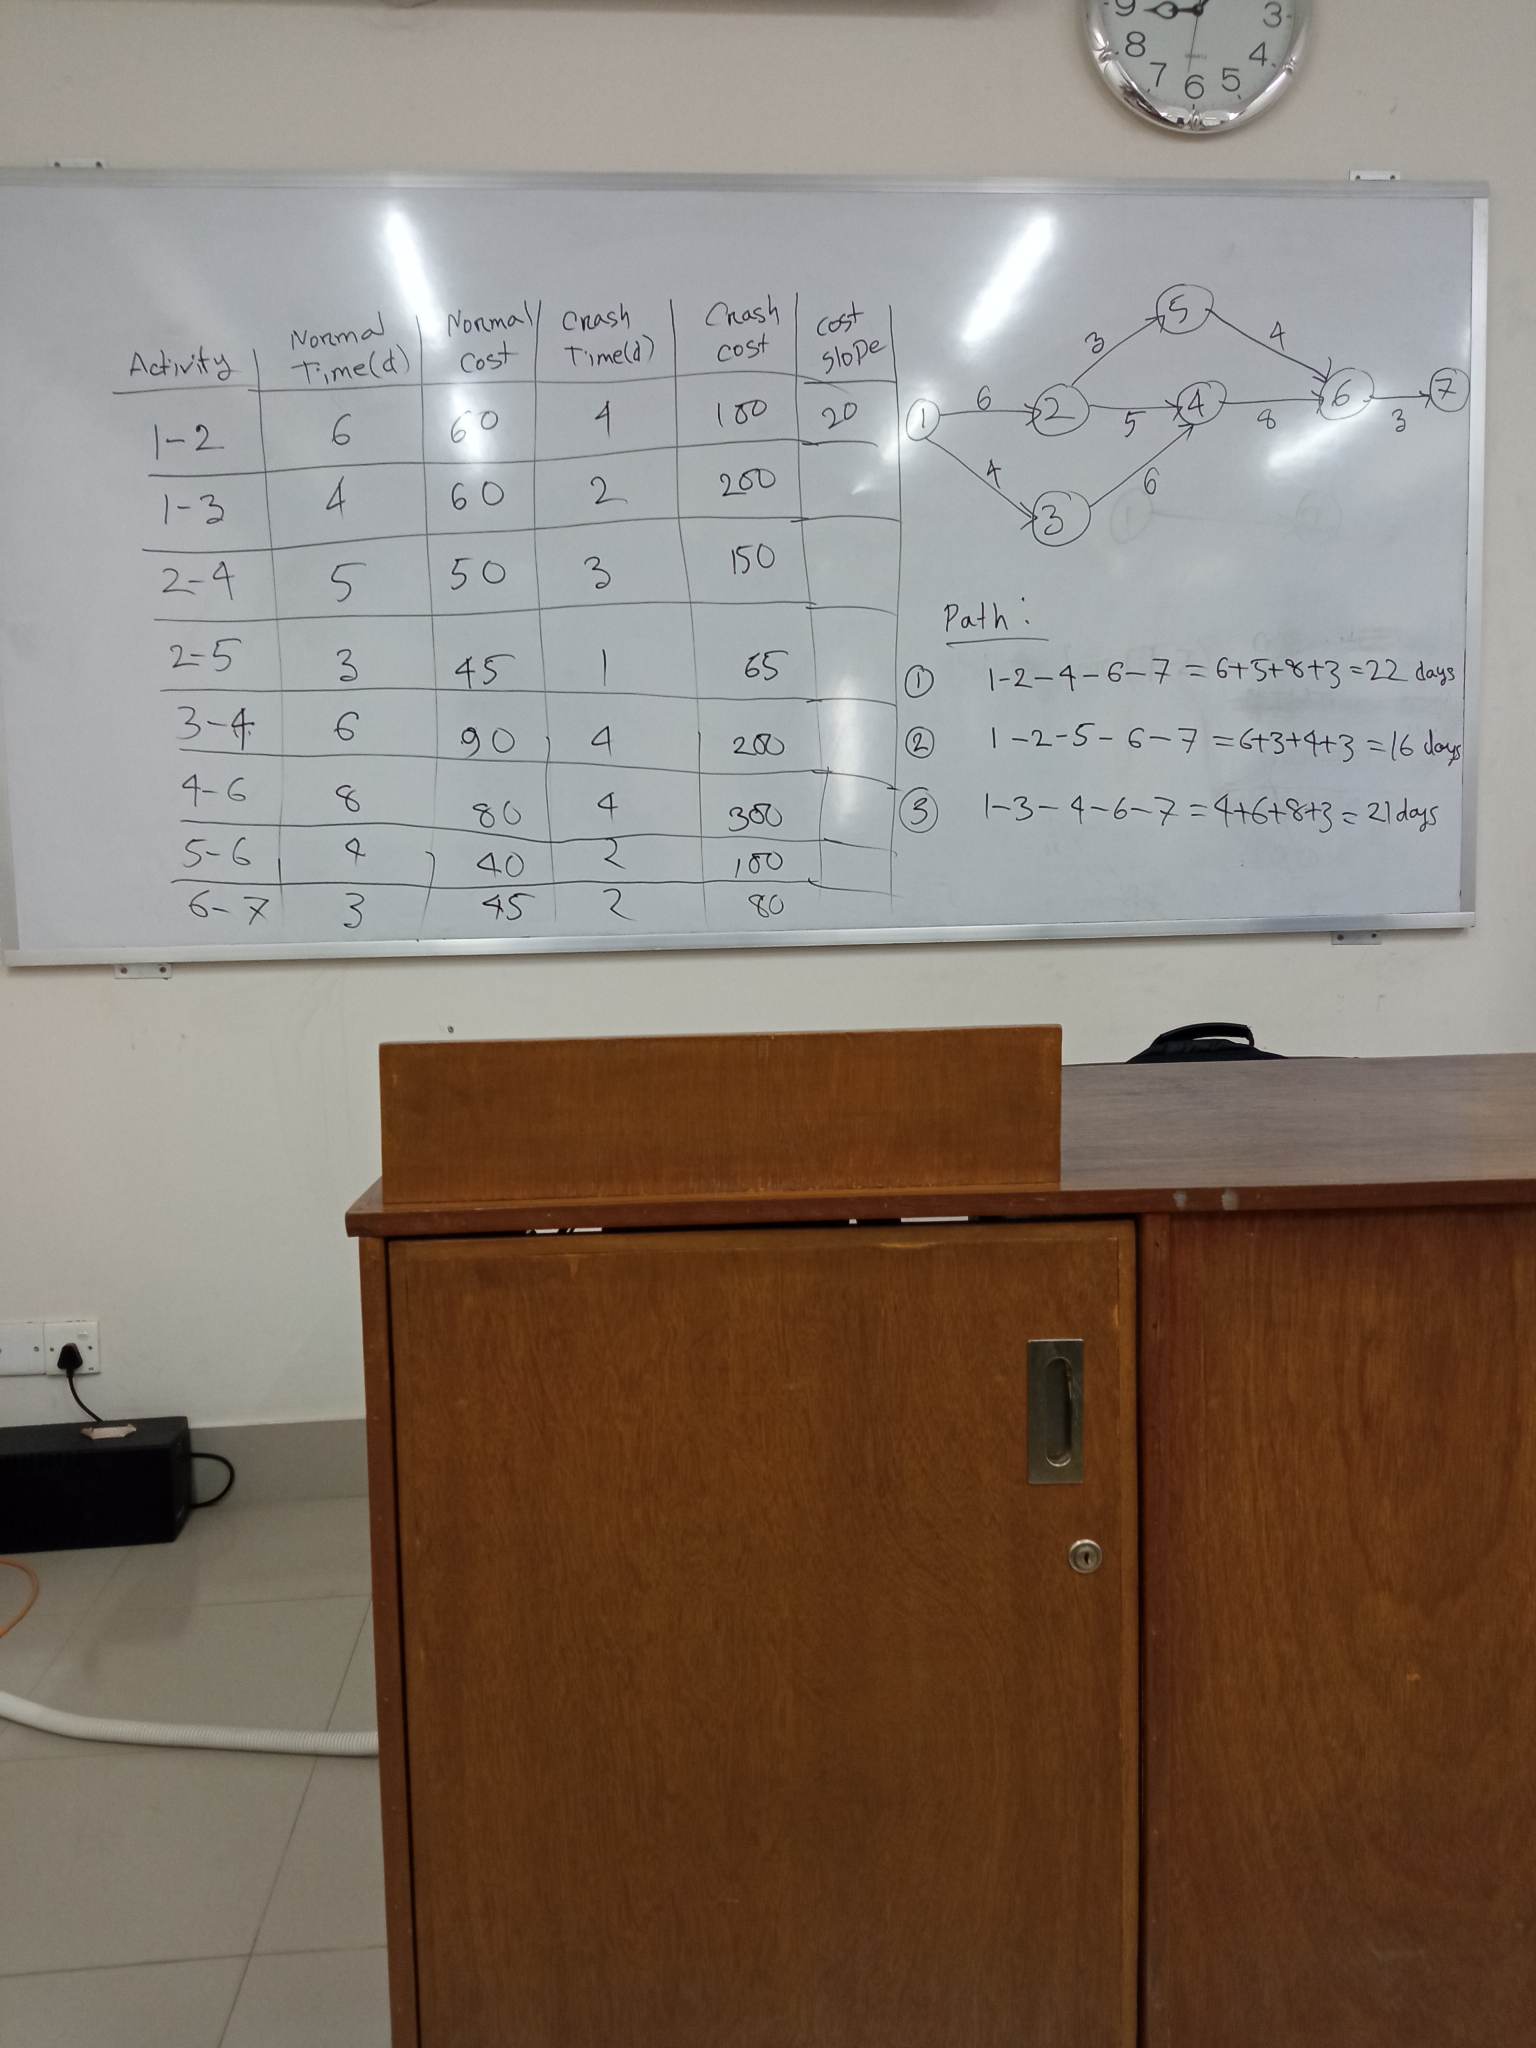 9 3
8 4
7 6 5
Activity | Normal Time(d) | Normal Cost | Crash Time(d) | Crash cost | cost slope
1-2 | 6 | 60 | 4 | 100 | 20
1-3 | 4 | 60 | 2 | 200
2-4 | 5 | 50 | 3 | 150
2-5 | 3 | 45 | 1 | 65
3-4 | 6 | 90 | 4 | 200
4-6 | 8 | 80 | 4 | 300
5-6 | 4 | 40 | 2 | 100
6-7 | 3 | 45 | 2 | 80
5
3 4
1 6 2 5 4 8 6 3 7
4 6
3
Path:
① 1-2-4-6-7 = 6+5+8+3 = 22 days
② 1-2-5-6-7 = 6+3+4+3 = 16 days
③ 1-3-4-6-7 = 4+6+8+3 = 21 days